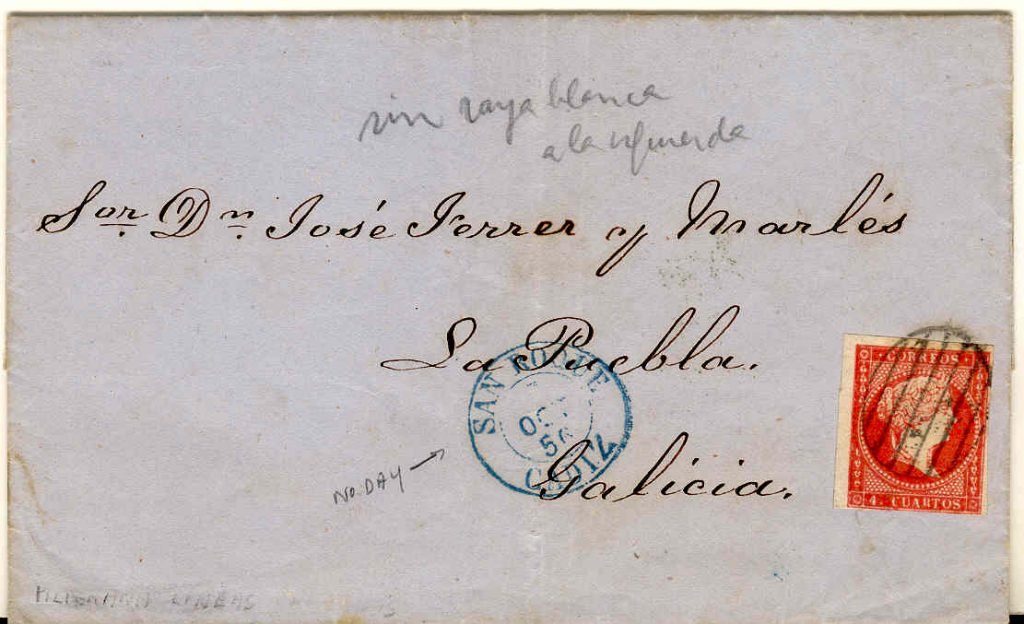 sin raya blanca
a la izquierda
Sor. Dn. José Ferrer y Marlés
La Puebla.
SAN ROQUE
OCT
56
CADIZ
NO DAY →
Galicia.
CORREOS
4. CUARTOS
LINEAS